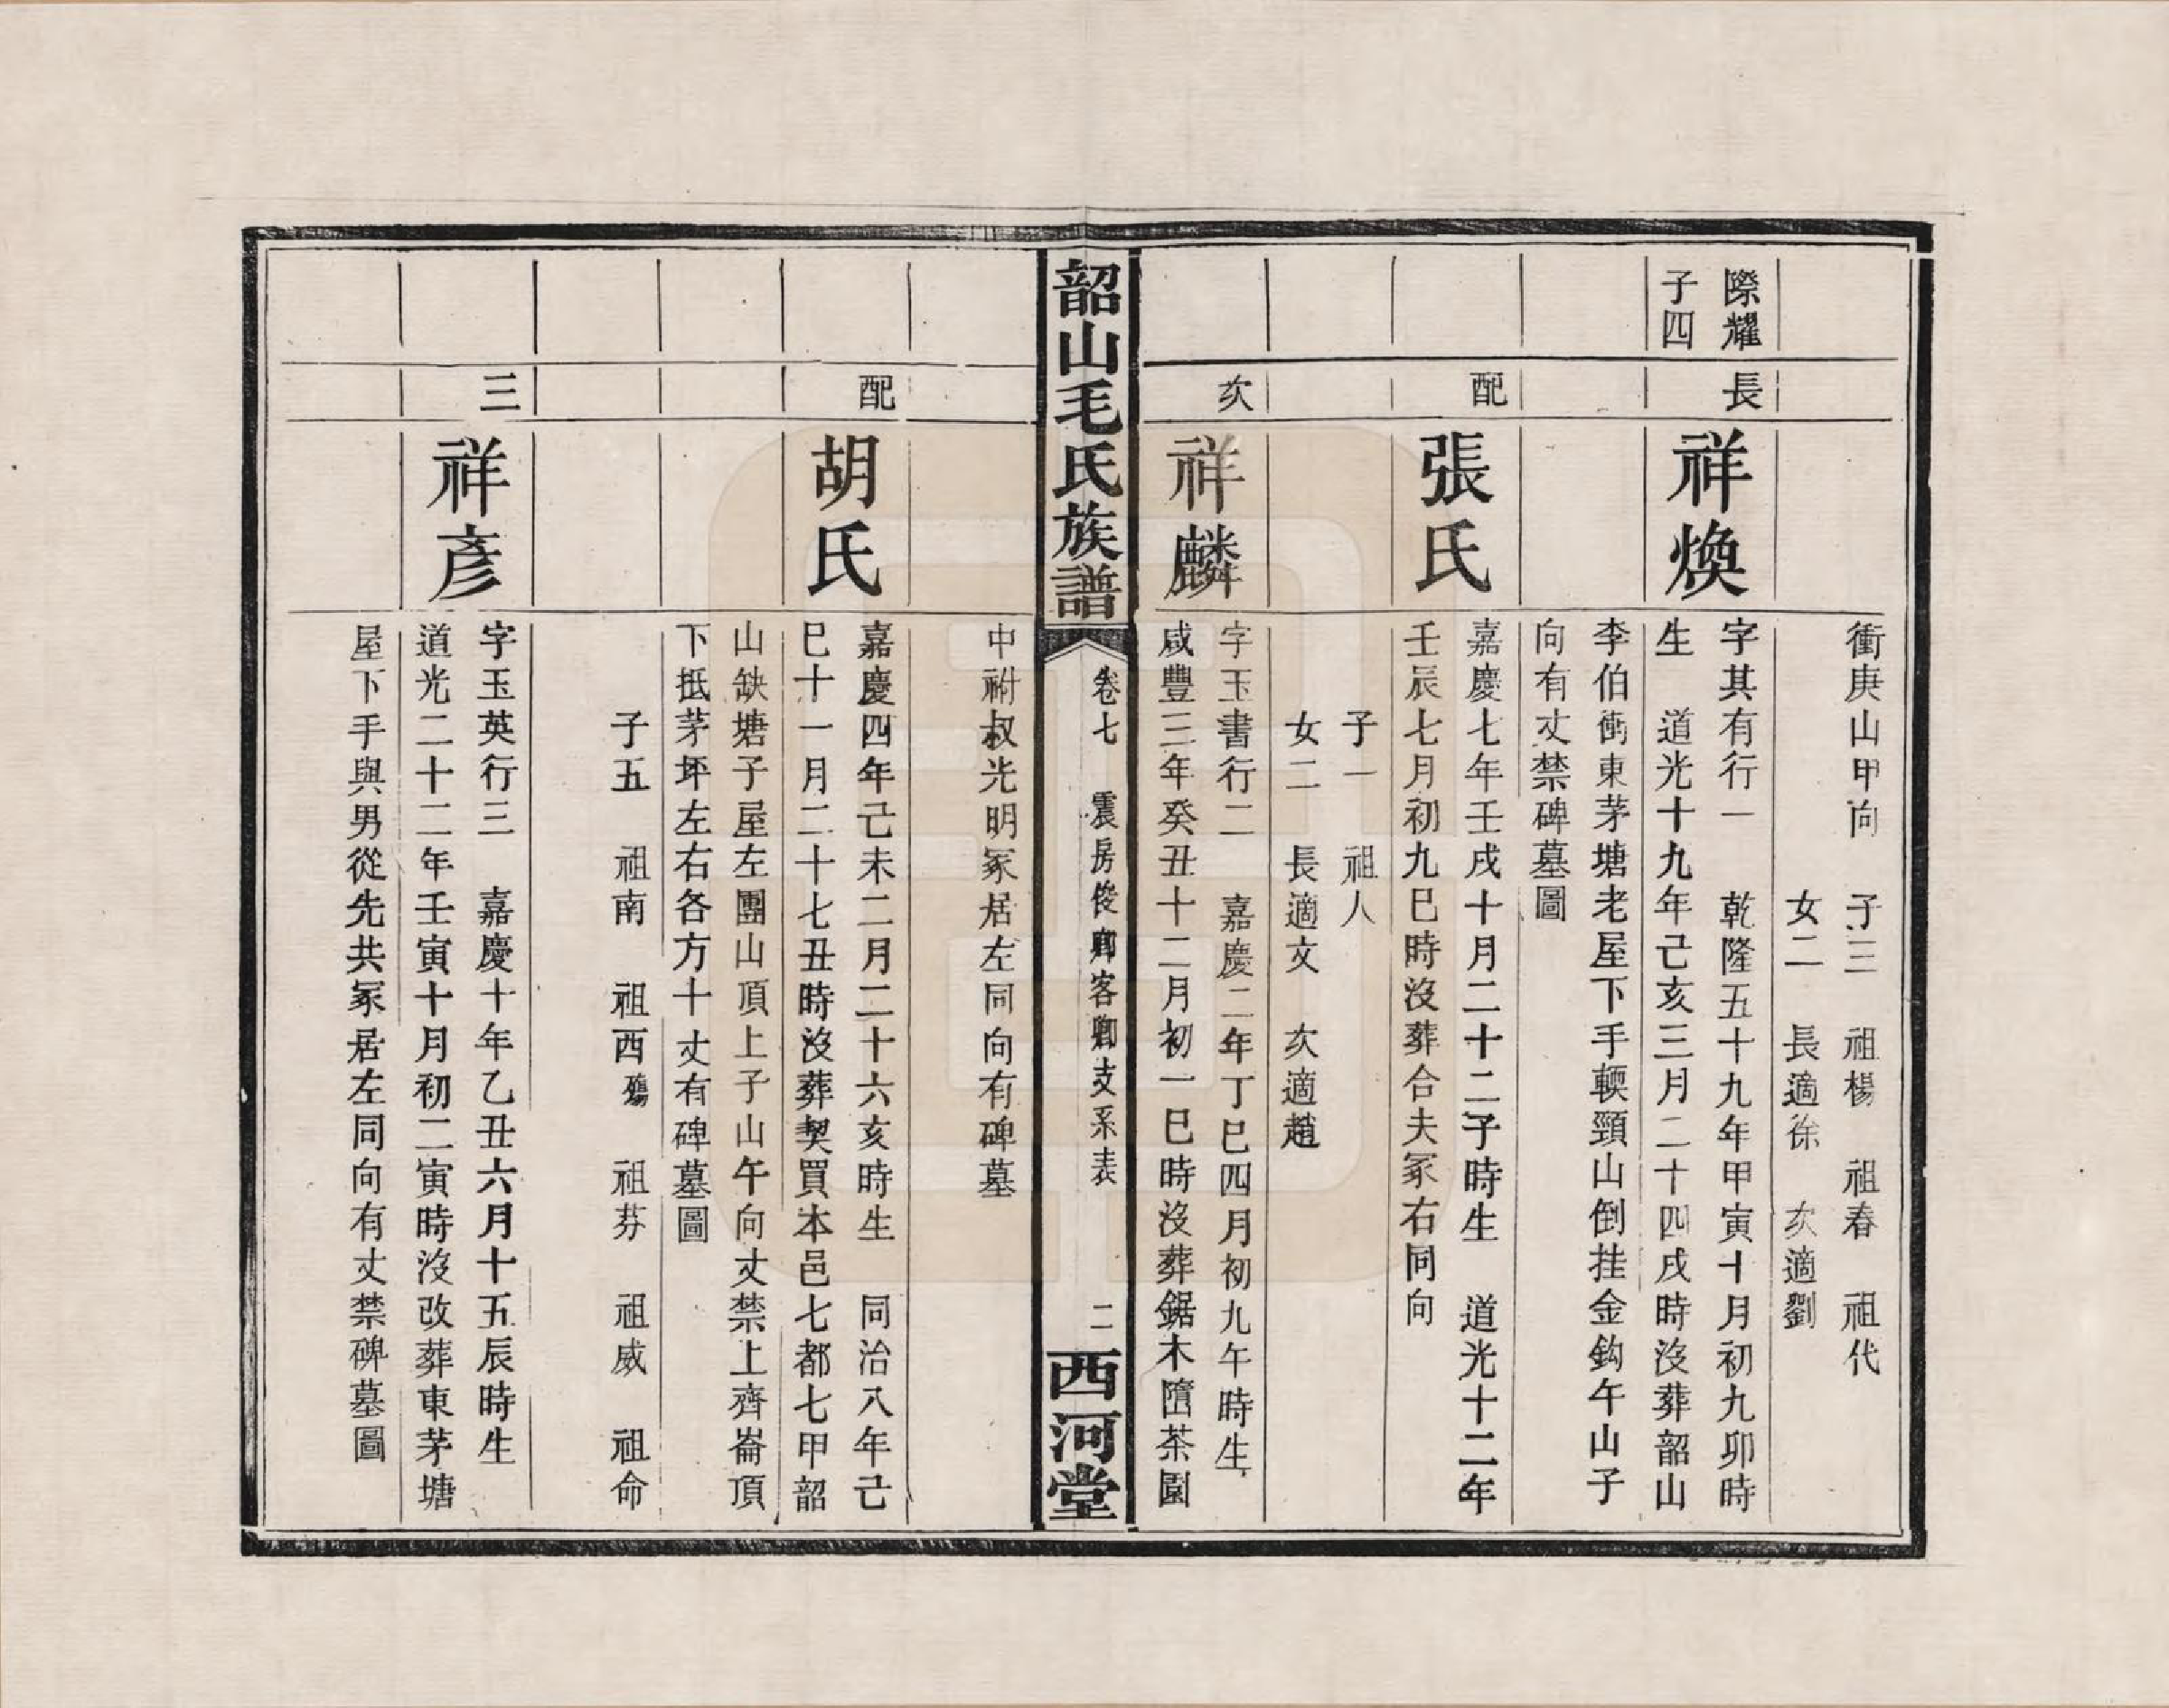 衝庚山甲向　子三　祖楊　祖春　祖代
女二　長適徐　次適劉
際耀
子四
長
祥煥
字其有行一　乾隆五十九年甲寅十月初九卯時
生　道光十九年己亥三月二十四戌時沒葬韶山
李伯衝東茅塘老屋下手輭頸山倒挂金鈎午山子
向有丈禁碑墓圖
配
張氏
嘉慶七年壬戌十月二十二子時生　道光十二年
壬辰七月初九巳時沒葬合夫冢右同向
子一　祖人
女二　長適文　次適趙
次
祥麟
字玉書行二　嘉慶二年丁巳四月初九午時生
咸豐三年癸丑十二月初一巳時沒葬鋸木凹茶園
韶山毛氏族譜
卷七　震房俊卿客卿支系表
二
西河堂
中祔叔光明冢居左同向有碑墓
配
胡氏
嘉慶四年己未二月二十六亥時生　同治八年己
巳十一月二十七丑時沒葬契買本邑七都七甲韶
山缺塘子屋左團山頂上子山午向丈禁上齊崙頂
下抵茅坪左右各方十丈有碑墓圖
子五　祖南　祖西殤　祖芬　祖威　祖命
三
祥彥
字玉英行三　嘉慶十年乙丑六月十五辰時生
道光二十二年壬寅十月初二寅時沒改葬東茅塘
屋下手與男從先共冢居左同向有丈禁碑墓圖